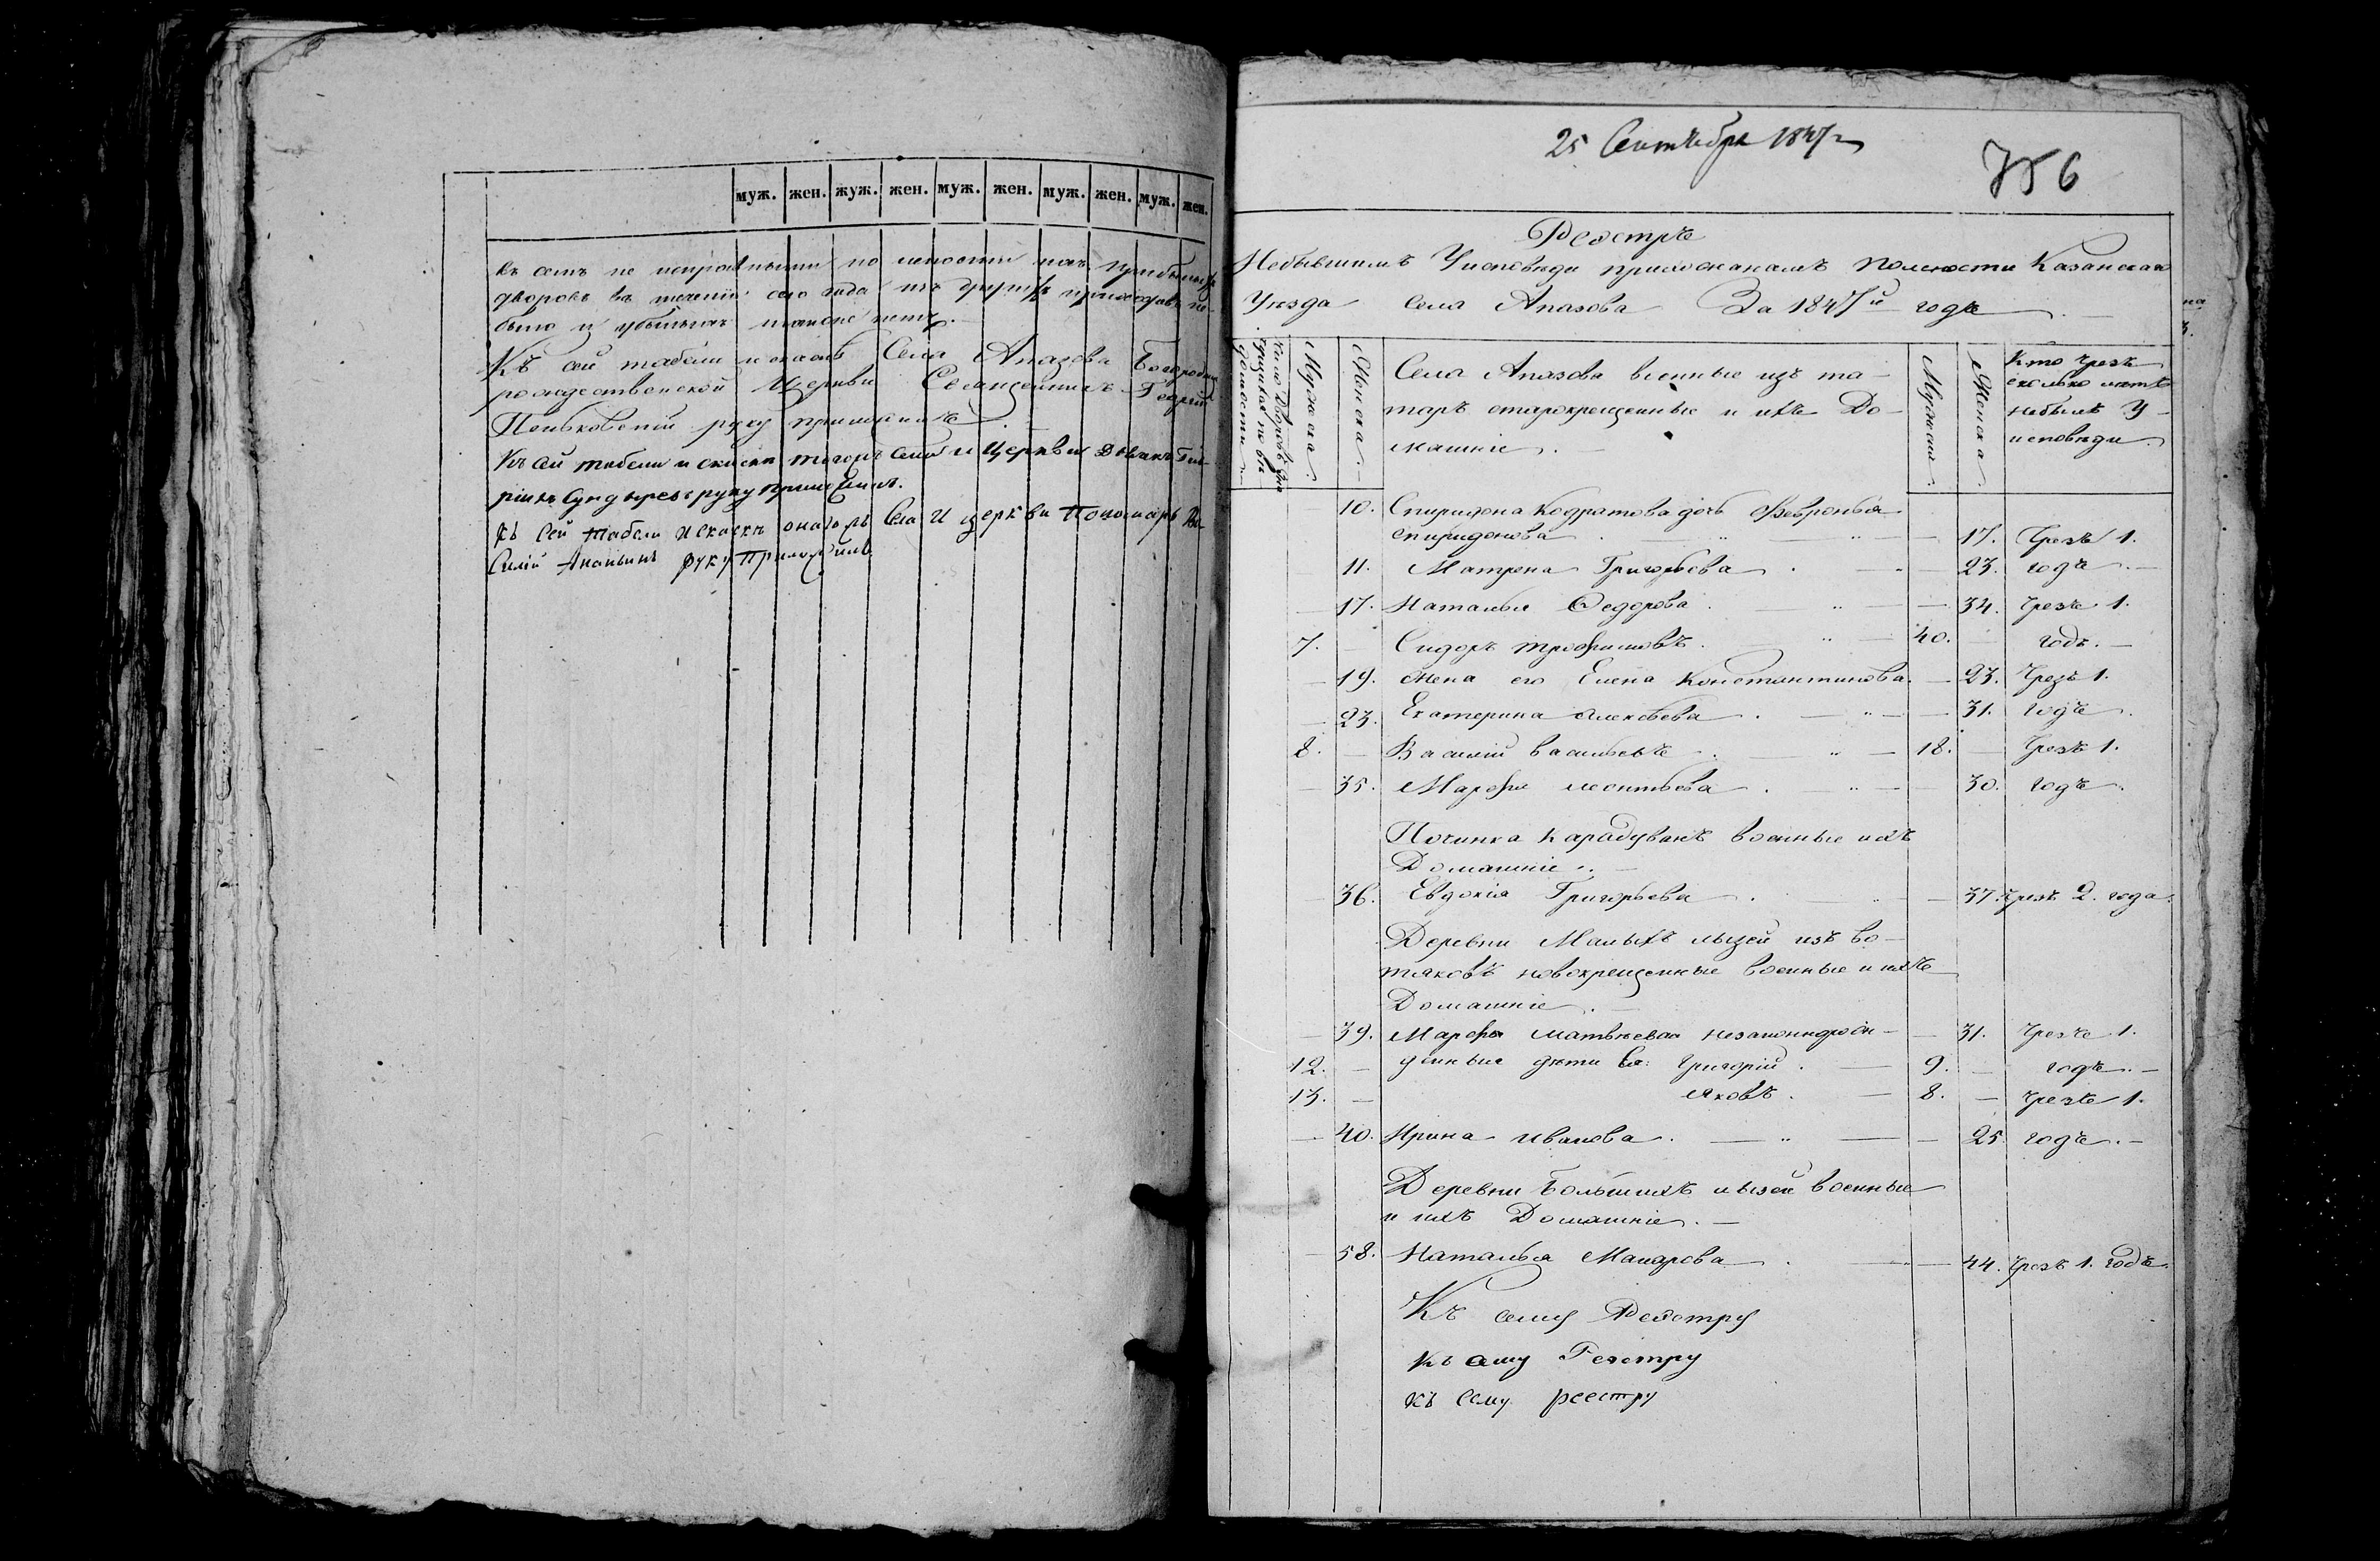 муж. жен. муж. жен. муж. жен. муж. жен. муж. жен.
въ семъ не исправными по исности нахъ прибылыхъ
дворовъ въ теченіи сего года изъ другихъ приходовъ не
было и убылыхъ также нету.
Къ сей табели и сказкѣ Села Апазова Богородице
рождественской Церкви Священникъ Георгій
руку приложилъ
Къ сей табели и сказки тогожъ села и Церкви Дьячекъ
руку приложилъ.
къ сей табели и сказкѣ онагожъ Села и церкви Пономарь Ва-
силій Ананьинъ руку приложилъ
25 Сентября 1847 г
756
Реэстръ
Небывшимъ У исповѣди прихожанамъ Казанскаго
Уѣзда Села Апазова За 1847й годъ
Число дворовъ
Мужеска.
Женска.
Села Апазова военные изъ та-
таръ старокрещенные и ихъ До-
машніе.
Мужска.
Женска
Кто чрезъ
сколько лѣтъ
небылъ У
исповѣди.
10. Спиридона Кодратова дочь Февронья
Спиридонова. 17. Чрезъ 1.
11. Матрена Григорьева. 23. годъ.
17. Наталья Федорова. 34. чрезъ 1.
7. Сидоръ Трофимовъ. 40. годъ.
19. Жена его Елена Константинова. 23. Чрезъ 1.
23. Екатерина Алексѣева. 31. годъ.
8. Василій Васильевъ. 18. Чрезъ 1.
35. Марфа Леонтьева. 30. годъ.
Починка Карадуванъ военные ихъ
Домашніе.
36. Евдокія Григорьева. 37. Чрезъ 2. года.
Деревни Малыхъ Лызей изъ во-
тяковъ новокрещенные военные и ихъ
Домашніе.
39. Марфы Матвѣевая незаконнорож- 31. Чрезъ 1.
12. денные дѣти ея: Григорій. 9. годъ.
13. Яковъ. 8. чрезъ 1.
40. Ирина Иванова. 25. годъ.
Деревни Большихъ Лызей военные
и ихъ Домашніе.
58. Наталья Макарова. 44. Чрезъ 1. годъ.
Къ сему Реэстру
Къ сему Реэстру
Къ сему реестру